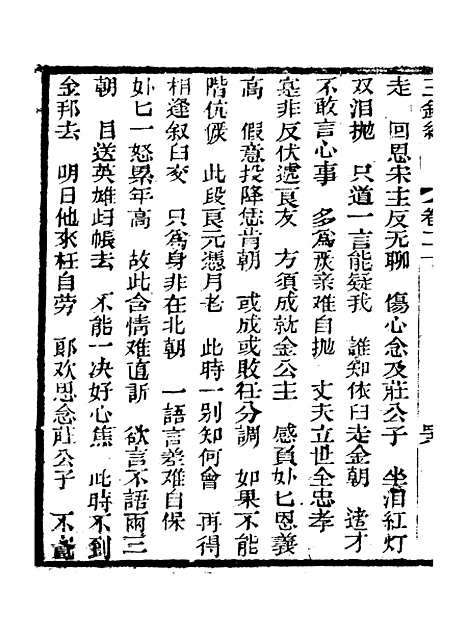 卷二十
走　回思宋主反无聊　傷心念及莊公子　坐泪紅灯
双泪抛　只道一言能疑我　誰知依旧走金朝　這才
不敢言心事　多為疾羕难自抛　丈夫立世全忠孝
寔非反伏遞良友　方須成就金公主　感頁妣匕恩義
高　假意投降恁肯朝　或成或敗任分調　如果不能
階伉儷　此段良元憑月老　此時一别知何會　再得
相逢叙旧交　只為身非在北朝　一語言差难自保
妣匕一怒累年高　故此含情难直訴　欲言不語兩三
朝　目送英雄归帳去　不能一决好心焦　此時不到
金邦去　明日他來枉自劳　郎欢恩念莊公子　不